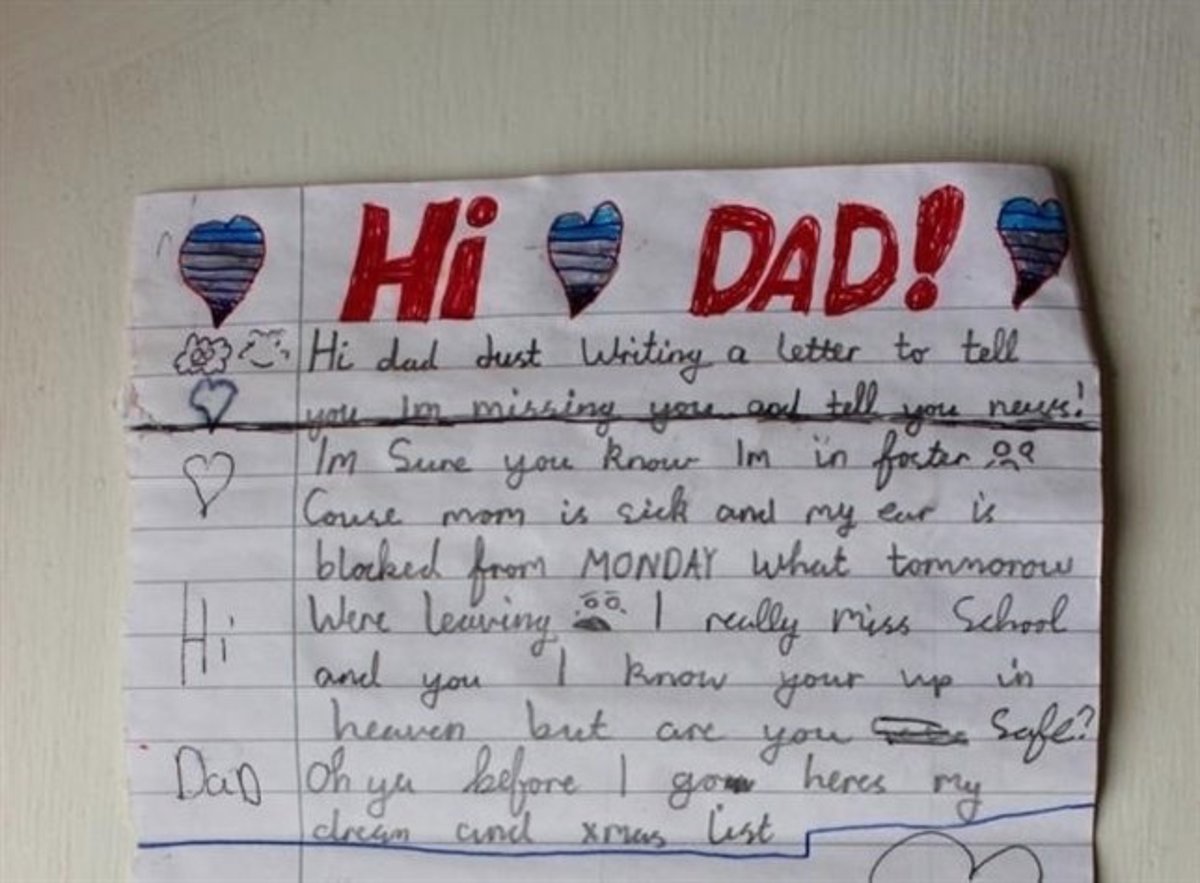 Hi DAD!
Hi dad Just Writing a letter to tell
you Im missing you and tell you news!
Im Sure you know Im in foster
Couse mom is sick and my ear is
blocked from MONDAY what tommorow
Were leaving I really miss School
Hi
and you I know your up in
heaven but are you Safe?
Dad Oh ya before I go heres my
dream and xmas list